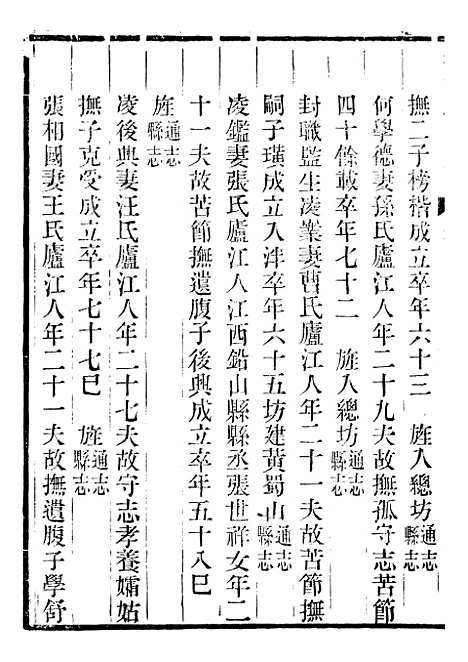 撫二子榜楷成立卒年六十三　旌入總坊通志縣志
何學德妻孫氏廬江人年二十九夫故撫孤守志苦節
四十餘載卒年七十二　旌入總坊通志縣志
封職監生凌業妻曹氏廬江人年二十一夫故苦節撫
嗣子璜成立入泮卒年六十五坊建黃蜀山通志縣志
凌鑑妻張氏廬江人江西鉛山縣縣丞張世祥女年二
十一夫故苦節撫遺腹子後興成立卒年五十八巳
旌通志縣志
凌後興妻汪氏廬江人年二十七夫故守志孝養孀姑
撫子克受成立卒年七十七巳　旌通志縣志
張相國妻王氏廬江人年二十一夫故撫遺腹子學舒